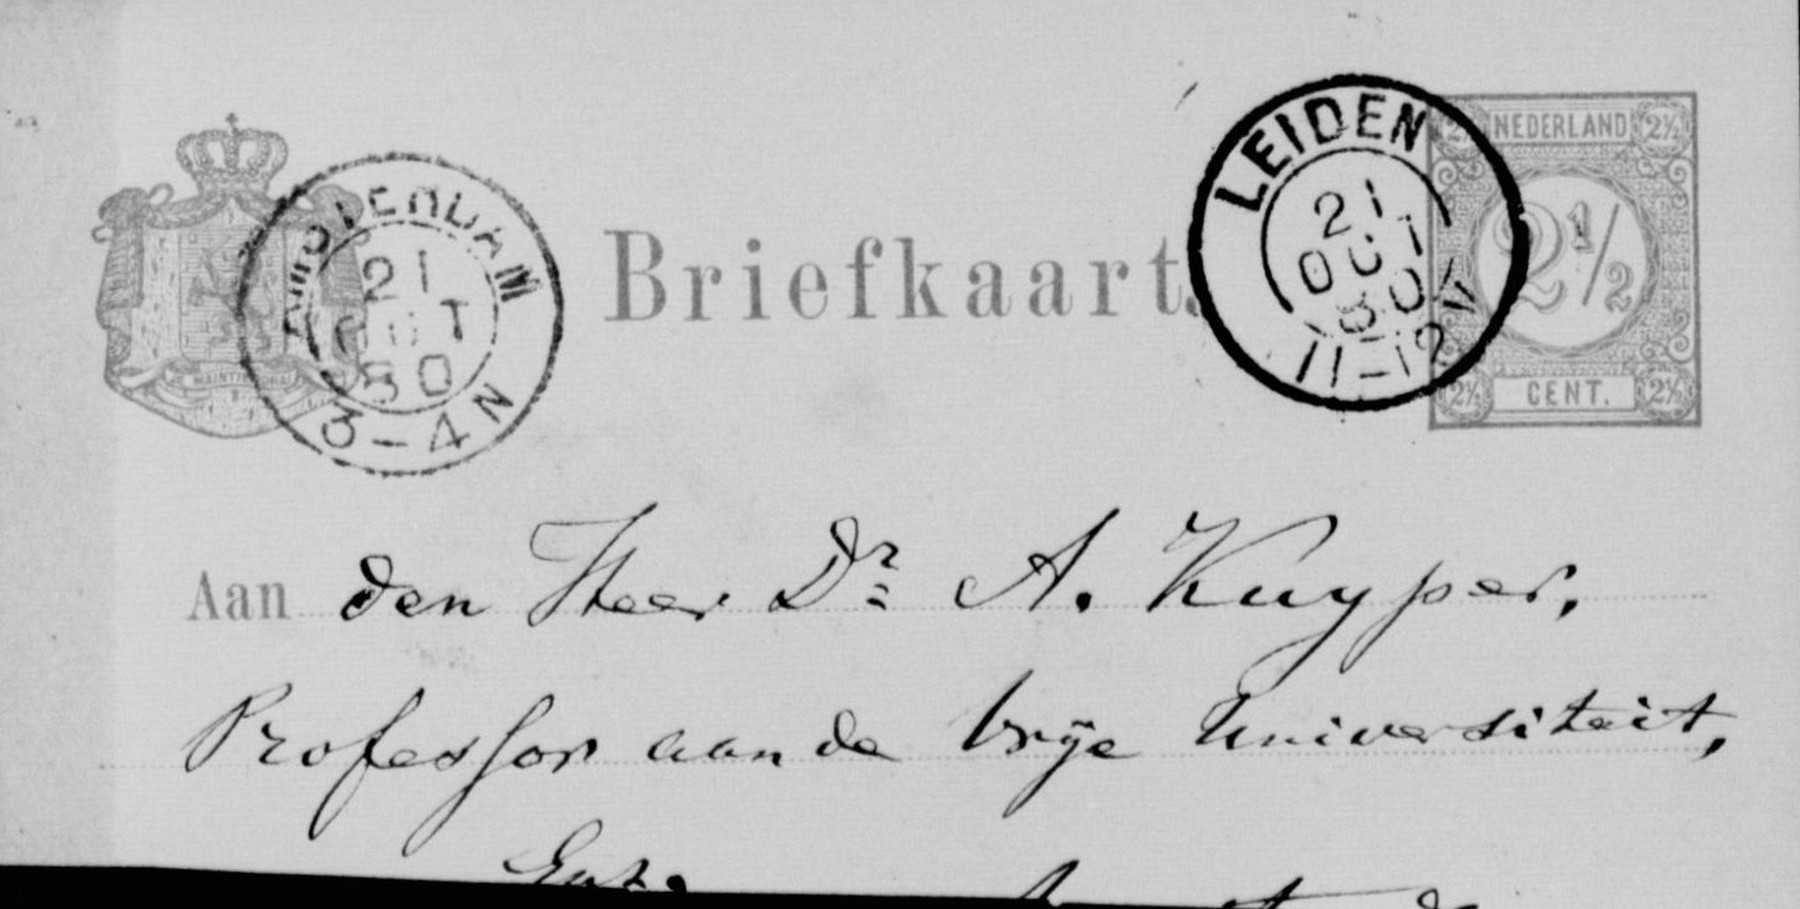 AMSTERDAM
21
OCT
80
3-4N
JE MAINTIENDRAI
Briefkaart.
LEIDEN
21
OCT
80
11-12V
2½ NEDERLAND 2½
2½
2½ CENT. 2½
Aan den Heer Dr. A. Kuyper,
Professor aan de Vrije Universiteit,